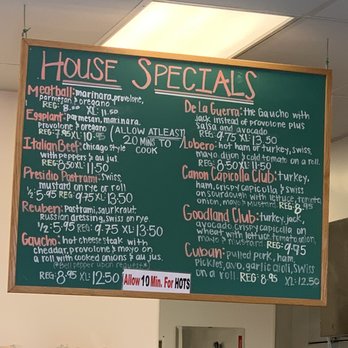 HOUSE SPECIALS
Meatball: marinara, provolone,
parmesan & oregano
REG: 8.95 XL: 11.50
Eggplant: parmesan, marinara,
provolone & oregano (ALLOW ATLEAST)
REG: 7.95 XL 10.95 20 MINS TO
COOK
Italian Beef: chicago style
with peppers & au jus
REG: 8.50 XL: 11.50
Presidio Pastrami: Swiss,
mustard on rye or roll
1/2 5.95 REG: 9.75 XL: 13.50
Reuben: pastrami, saurkraut
Russian dressing, swiss on rye
1/2 5.95 REG: 9.75 XL: 13.50
Gaucho: hot cheese steak with
cheddar, provolone & mayo on
a roll with cooked onions & au jus
*Bell pepper upon request
REG: 8.95 XL: 12.50
De La Guerra: the Gaucho with
jack instead of provolone plus
salsa and avocado
REG: 9.75 XL: 13.50
Lobero: hot ham or turkey, swiss,
mayo, dijon & cold tomato on a roll.
REG: 8.50 XL: 11.50
Canon Capicolla Club: turkey,
ham, crispy capicolla & swiss
on sourdough with lettuce, tomato,
mayo & mustard REG: 8.95
Goodland Club: turkey, jack,
avocado, crispy capicolla on
wheat with lettuce, tomato, onion,
mayo & mustard REG: 9.75
Cuban: pulled pork, ham,
pickles, avo, garlic aioli, swiss
on a roll. REG: 8.95 XL: 12.50
Allow 10 Min. For HOTS